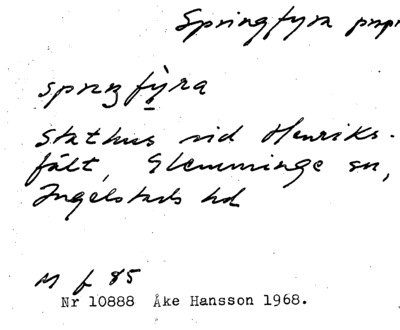 Springfyra prpr
spreŋfy̱ra
stathus vid Henriks-
fält, Glemminge sn,
Ingelstads hd
M f 85
Nr 10888 Åke Hansson 1968.